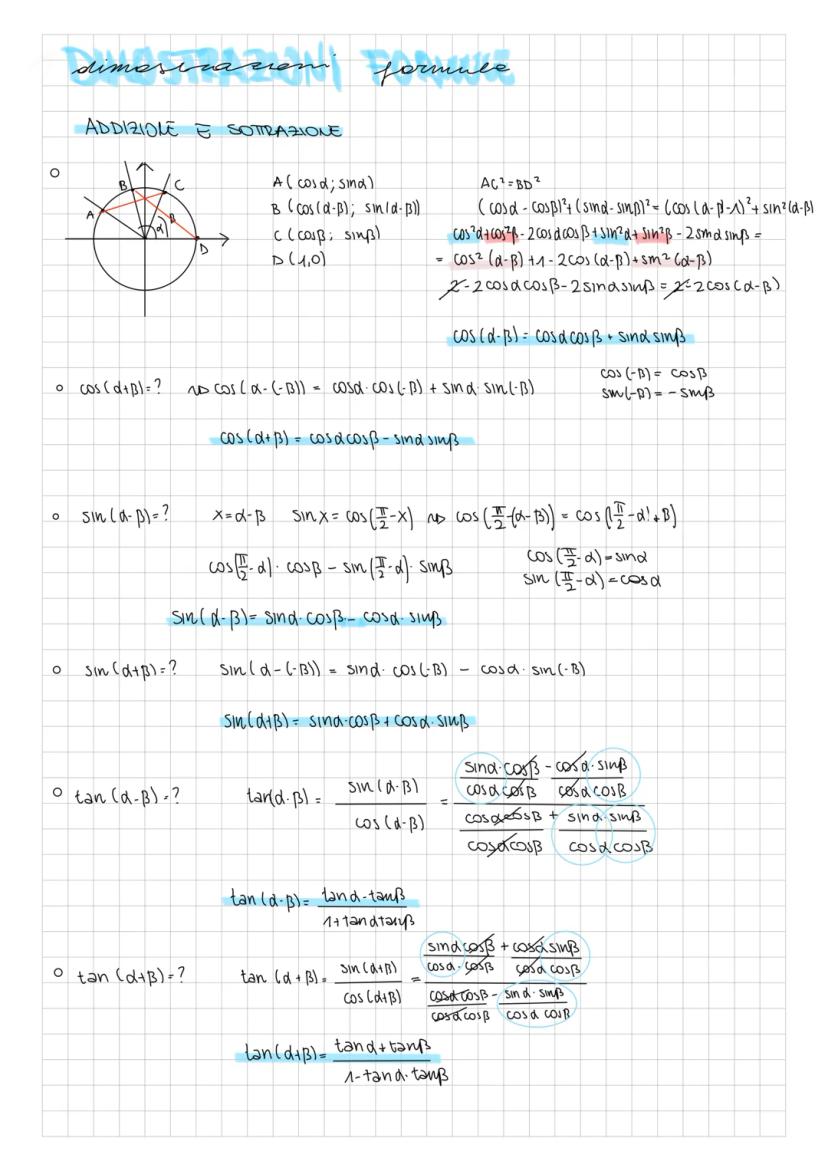 dimostrazioni formule
ADDIZIONE E SOTTRAZIONE
B C A β α D
A (cosα; sinα)
B (cos(α-β); sin(α-β))
C (cosβ; sinβ)
D (1,0)
AC² = BD²
(cosα - cosβ)² + (sinα - sinβ)² = (cos(α-β)-1)² + sin²(α-β)
cos²α + cos²β - 2cosαcosβ + sin²α + sin²β - 2sinαsinβ =
= cos²(α-β) + 1 - 2cos(α-β) + sin²(α-β)
2 - 2cosαcosβ - 2sinαsinβ = 2 - 2cos(α-β)
cos(α-β) = cosαcosβ + sinαsinβ
cos(α+β) = ? ⇝ cos(α-(-β)) = cosα·cos(-β) + sinα·sin(-β)
cos(-β) = cosβ
sin(-β) = -sinβ
cos(α+β) = cosαcosβ - sinαsinβ
sin(α-β) = ? x = α-β sinx = cos(π/2 - x) ⇝ cos(π/2 - (α-β)) = cos((π/2 - α) + β)
cos(π/2 - α)·cosβ - sin(π/2 - α)·sinβ
cos(π/2 - α) = sinα
sin(π/2 - α) = cosα
sin(α-β) = sinα·cosβ - cosα·sinβ
sin(α+β) = ? sin(α-(-β)) = sinα·cos(-β) - cosα·sin(-β)
sin(α+β) = sinα·cosβ + cosα·sinβ
tan(α-β) = ? tan(α-β) = sin(α-β)/cos(α-β) = (sinα·cosβ/cosαcosβ - cosα·sinβ/cosαcosβ)/(cosαcosβ/cosαcosβ + sinα·sinβ/cosαcosβ)
tan(α-β) = tanα-tanβ/1+tanαtanβ
tan(α+β) = ? tan(α+β) = sin(α+β)/cos(α+β) = (sinαcosβ/cosα·cosβ + cosαsinβ/cosαcosβ)/(cosαcosβ/cosαcosβ - sinα·sinβ/cosαcosβ)
tan(α+β) = tanα+tanβ/1-tanα·tanβ